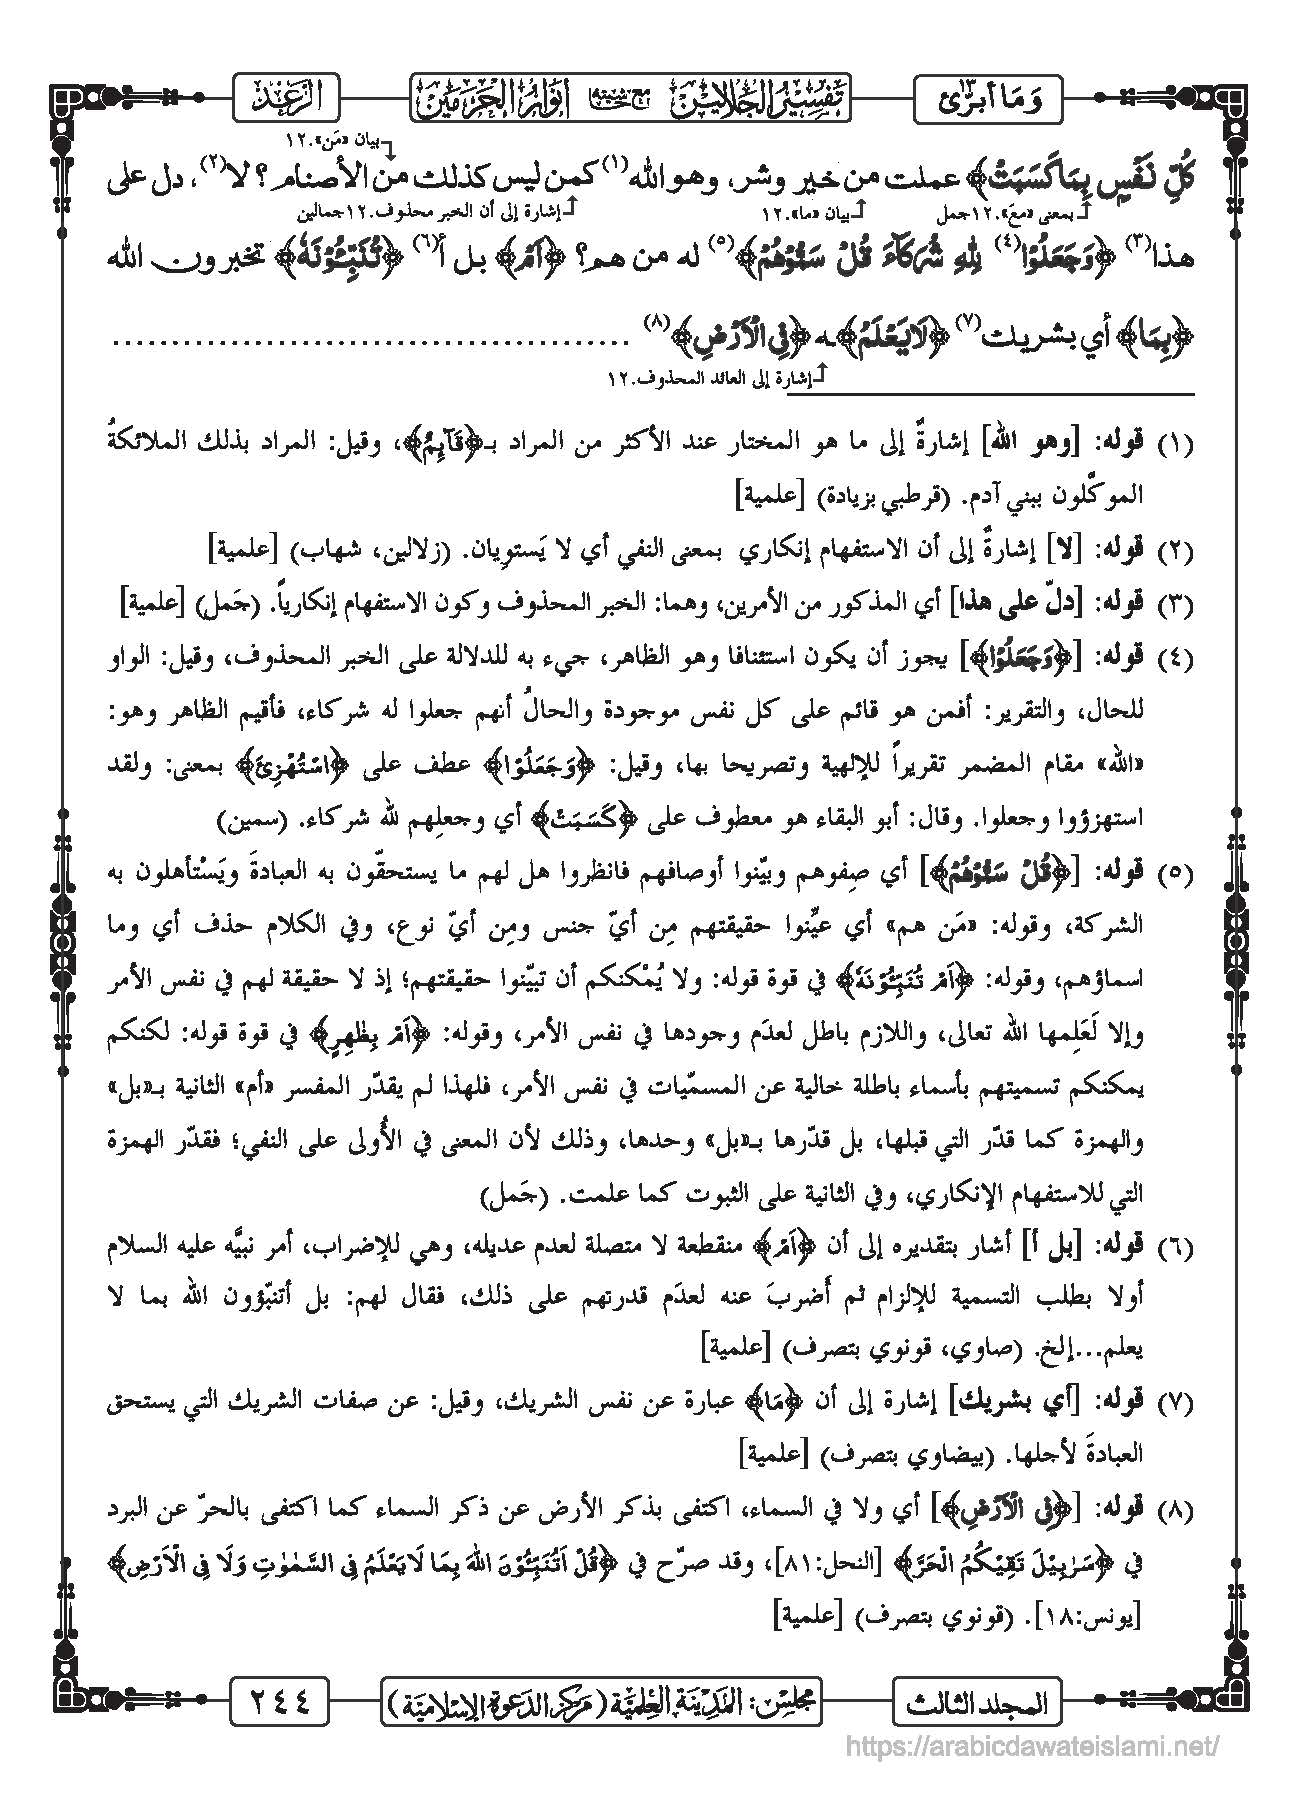 وَمَا أبرّئ ١٣
تفسير الجلالين مع حاشيته أنوار الحرمين
الرعد
بيان «مَن».١٢
كُلِّ نَفْسٍ بِمَا كَسَبَتْ﴾ عملت من خير وشر، وهو الله(١) كمن ليس كذلك من الأصنام؟ لا(٢)، دل على
بمعنى «مَعَ».١٢جمل
بيان «ما».١٢
إشارة إلى أن الخبر محذوف.١٢جمالين
هذا(٣) ﴿وَجَعَلُوْا(٤) لِلّٰهِ شُرَكَآءَ قُلْ سَمُّوْهُمْ﴾(٥) له من هم؟ ﴿اَمْ﴾ بل أ(٦) ﴿تُنَبِّـُٔوْنَهٗ﴾ تخبرون الله
﴿بِمَا﴾ أي بشريك(٧) ﴿لَا يَعْلَمُ﴾ـه ﴿فِي الْاَرْضِ﴾(٨) ...........................................
إشارة إلى العائد المحذوف.١٢
(١) قوله: [وهو الله] إشارةٌ إلى ما هو المختار عند الأكثر من المراد بـ﴿قَآىِٕمٌ﴾، وقيل: المراد بذلك الملائكةُ
الموكَّلون ببني آدم. (قرطبي بزيادة) [علمية]
(٢) قوله: [لا] إشارةٌ إلى أن الاستفهام إنكاري بمعنى النفي أي لا يَستوِيان. (زلالين، شهاب) [علمية]
(٣) قوله: [دلّ على هذا] أي المذكور من الأمرين، وهما: الخبر المحذوف وكون الاستفهام إنكارياً. (جَمل) [علمية]
(٤) قوله: [﴿وَجَعَلُوْا﴾] يجوز أن يكون استئنافا وهو الظاهر، جيء به للدلالة على الخبر المحذوف، وقيل: الواو
للحال، والتقرير: أفمن هو قائم على كل نفس موجودة والحالُ أنهم جعلوا له شركاء، فأقيم الظاهر وهو:
«الله» مقام المضمر تقريراً للإلهية وتصريحا بها، وقيل: ﴿وَجَعَلُوْا﴾ عطف على ﴿اسْتُهْزِئَ﴾ بمعنى: ولقد
استهزؤوا وجعلوا. وقال: أبو البقاء هو معطوف على ﴿كَسَبَتْ﴾ أي وجعلِهم لله شركاء. (سمين)
(٥) قوله: [﴿قُلْ سَمُّوْهُمْ﴾] أي صِفوهم وبيّنوا أوصافهم فانظروا هل لهم ما يستحقّون به العبادةَ ويَسْتأهلون به
الشركة، وقوله: «مَن هم» أي عيِّنوا حقيقتهم مِن أيّ جنس ومِن أيّ نوع، وفي الكلام حذف أي وما
اسماؤهم، وقوله: ﴿اَمْ تُنَبِّـُٔوْنَهٗ﴾ في قوة قوله: ولا يُمْكنكم أن تبيّنوا حقيقتهم؛ إذ لا حقيقة لهم في نفس الأمر
وإلا لَعَلِمها الله تعالى، واللازم باطل لعدَم وجودها في نفس الأمر، وقوله: ﴿اَمْ بِظٰهِرٍ﴾ في قوة قوله: لكنكم
يمكنكم تسميتهم بأسماء باطلة خالية عن المسمّيات في نفس الأمر، فلهذا لم يقدّر المفسر «أم» الثانية بـ«بل»
والهمزة كما قدّر التي قبلها، بل قدّرها بـ«بل» وحدها، وذلك لأن المعنى في الأُولى على النفي؛ فقدّر الهمزة
التي للاستفهام الإنكاري، وفي الثانية على الثبوت كما علمت. (جَمل)
(٦) قوله: [بل أ] أشار بتقديره إلى أن ﴿اَمْ﴾ منقطعة لا متصلة لعدم عديله، وهي للإضراب، أمر نبيَّه عليه السلام
أولا بطلب التسمية للإلزام ثم أَضربَ عنه لعدَم قدرتهم على ذلك، فقال لهم: بل أتنبّؤون الله بما لا
يعلم...إلخ. (صاوي، قونوي بتصرف) [علمية]
(٧) قوله: [أي بشريك] إشارة إلى أن ﴿مَا﴾ عبارة عن نفس الشريك، وقيل: عن صفات الشريك التي يستحق
العبادةَ لأجلها. (بيضاوي بتصرف) [علمية]
(٨) قوله: [﴿فِي الْاَرْضِ﴾] أي ولا في السماء، اكتفى بذكر الأرض عن ذكر السماء كما اكتفى بالحرّ عن البرد
في ﴿سَرٰبِيْلَ تَقِيْكُمُ الْحَرَّ﴾ [النحل:٨١]، وقد صرّح في ﴿قُلْ اَتُنَبِّـُٔوْنَ اللّٰهَ بِمَا لَا يَعْلَمُ فِي السَّمٰوٰتِ وَلَا فِي الْاَرْضِ﴾
[يونس:١٨]. (قونوي بتصرف) [علمية]
المجلد الثالث
مجلس: المدينة العلمية (مركز الدعوة الإسلامية)
٢٤٤
https://arabicdawateislami.net/